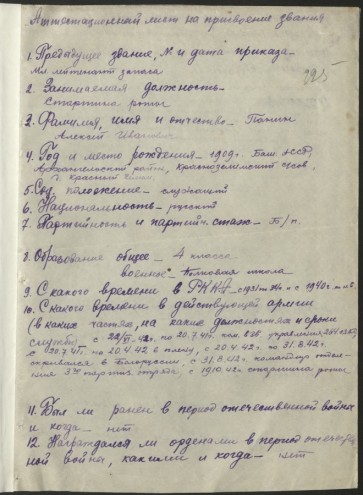 Аттестационный лист на присвоение звания
225
1. Предыдущее звание, № и дата приказа —
Мл. лейтенант запаса
2. Занимаемая должность —
Старшина роты
3. Фамилия, имя и отчество — Панин
Алексей Иванович
4. Год и место рождения — 1909 г. Баш. АССР,
Архангельский район, Краснозилимский с/сов.
5. Соц. положение — служащий
6. Национальность — русский
7. Партийность и партийн. стаж — Б/п.
8. Образование общее — 4 класса
военное — Полковая школа
9. С какого времени в РККА — с 1931 по и с 1940 г. по
10. С какого времени в действующей армии
(в каких частях, на каких должностях и сроки
службы) — с по 20.7.41. ком.
с 20.7.41. по 20.4.42 в плену, с 20.4.42. по 31.8.42.
скрывался в Белоруссии, с 31.8.42. командир отделения
3го с 19.10.42. старшина роты
11. Был ли ранен в период отечественной войны
и когда — нет
12. Награждался ли орденами в период отечествен-
ной войны, какими и когда — нет